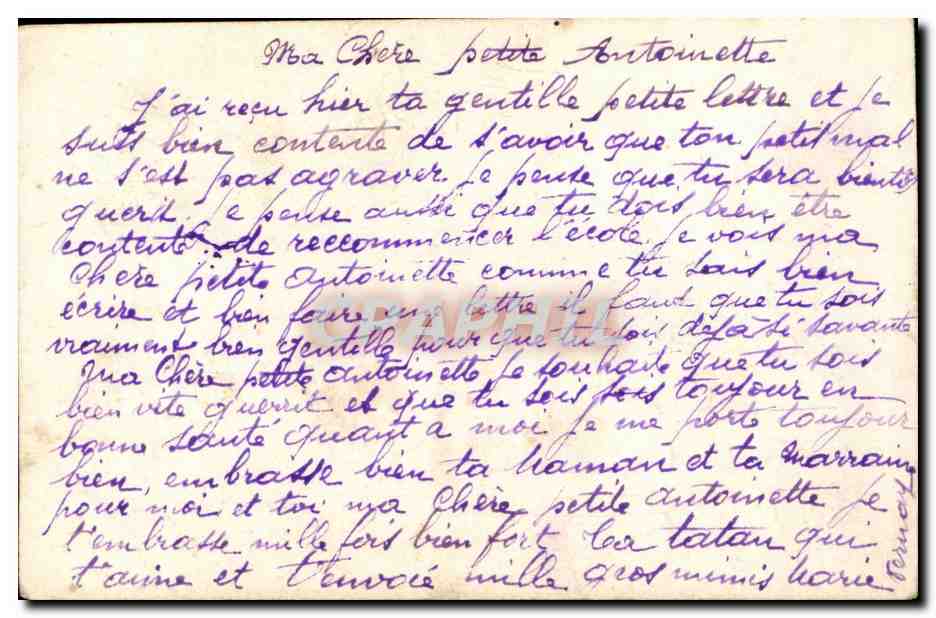 Ma Chère petite Antoinette
J'ai reçu hier ta gentille petite lettre et je
suis bien contente de s'avoir que ton petit mal
ne s'est pas agraver. je pense que tu sera bientôt
querit. je pense aussi que tu dois bien être
contente de reccommencer l'école, je vois ma
Chère petite antoinette comme tu sais bien
écrire et bien faire une lettre il faut que tu sois
vraiment bien gentille pour que tu sois déjà si savante
Ma Chère petite antoinette je souhaite que tu sois
bien vite querrit et que tu sois sois toujour en
bonne santé quant a moi je me porte toujour
bien, embrasse bien ta Maman et ta Marraine
pour moi et toi ma Chère petite antoinette je
t'embrasse mille fois bien fort ta tatan qui
t'aime et t'envoie mille gros mimis Marie